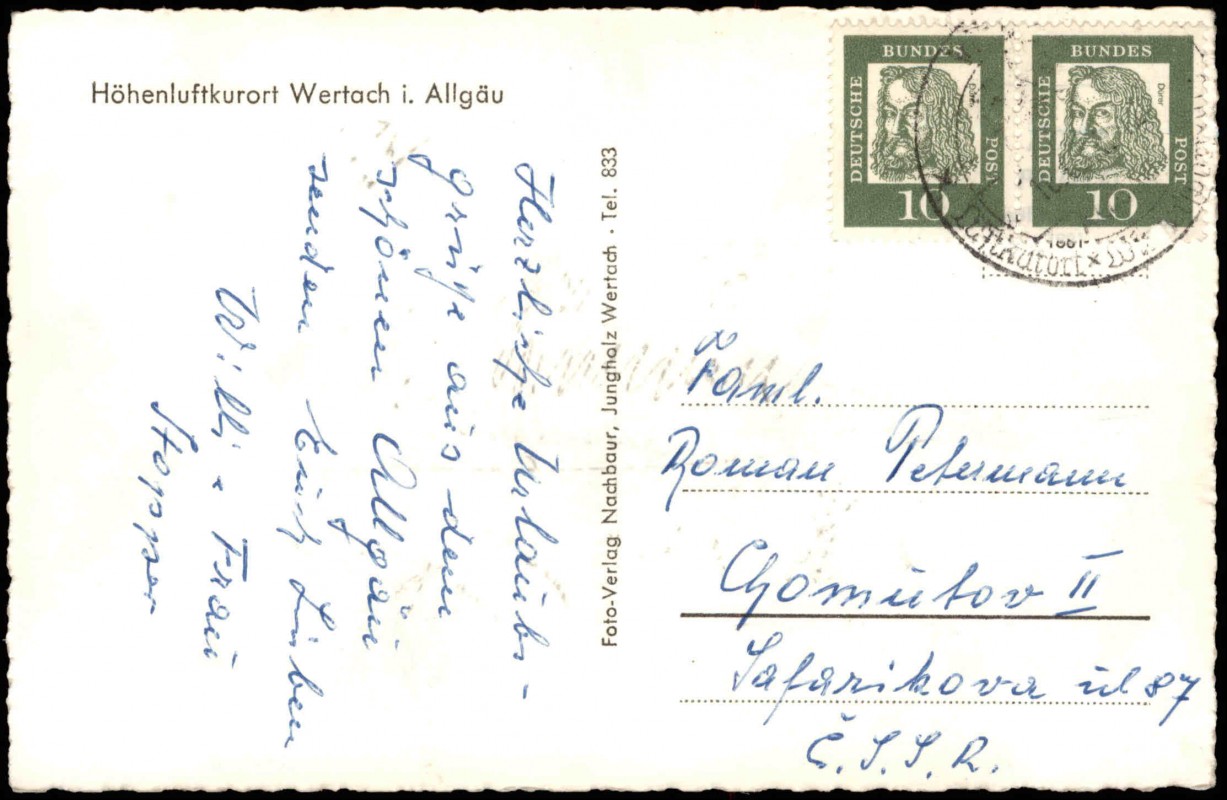 Höhenluftkurort Wertach i. Allgäu
Herzliche Urlaubs-
grüße aus dem
schönen Allgäu
senden Euch Lieben
Willi u Frau
Stopper
Foto-Verlag Nachbaur, Jungholz Wertach · Tel. 833
DEUTSCHE BUNDES POST
10
Dürer
DEUTSCHE BUNDES POST
10
Dürer
Luftkurort
Faml.
Roman Petermann
Chomutov II
Safarikova ul 87
Č.S.S.R.